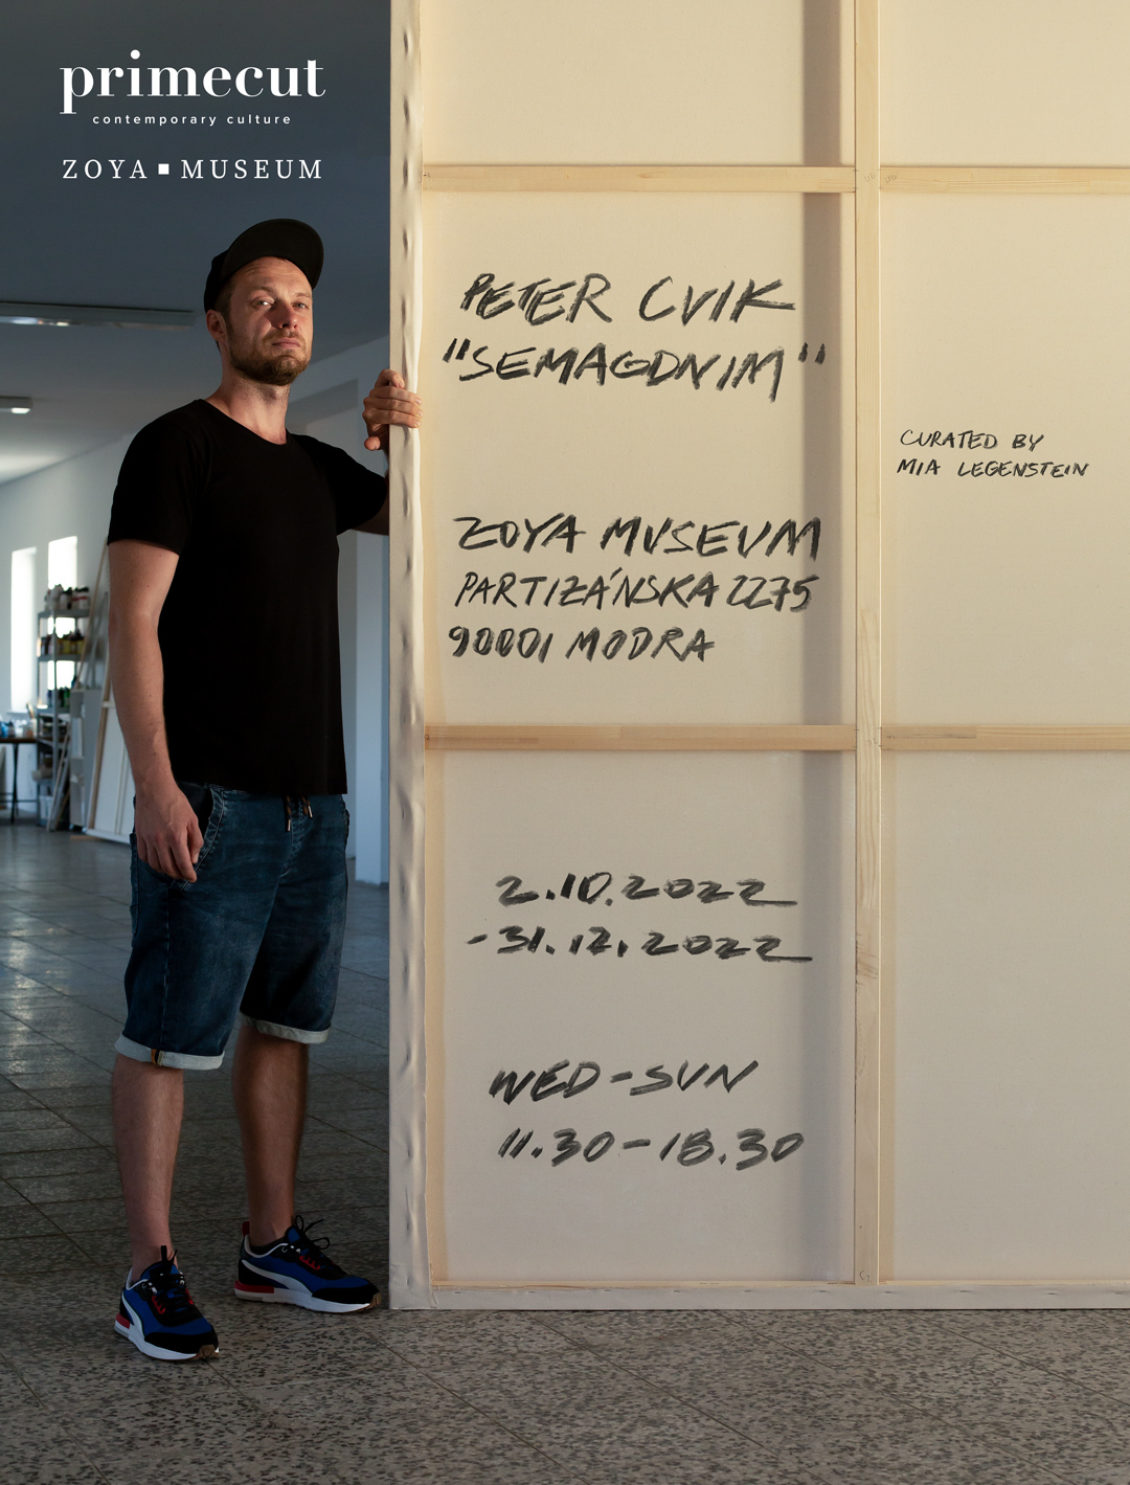 primecut
contemporary culture
ZOYA ▪ MUSEUM
PETER CVIK
"SEMAGDNIM"
CURATED BY
MIA LEGENSTEIN
ZOYA MUSEUM
PARTIZÁNSKA 2275
90001 MODRA
2.10.2022
-31.12.2022
WED-SUN
11.30-18.30